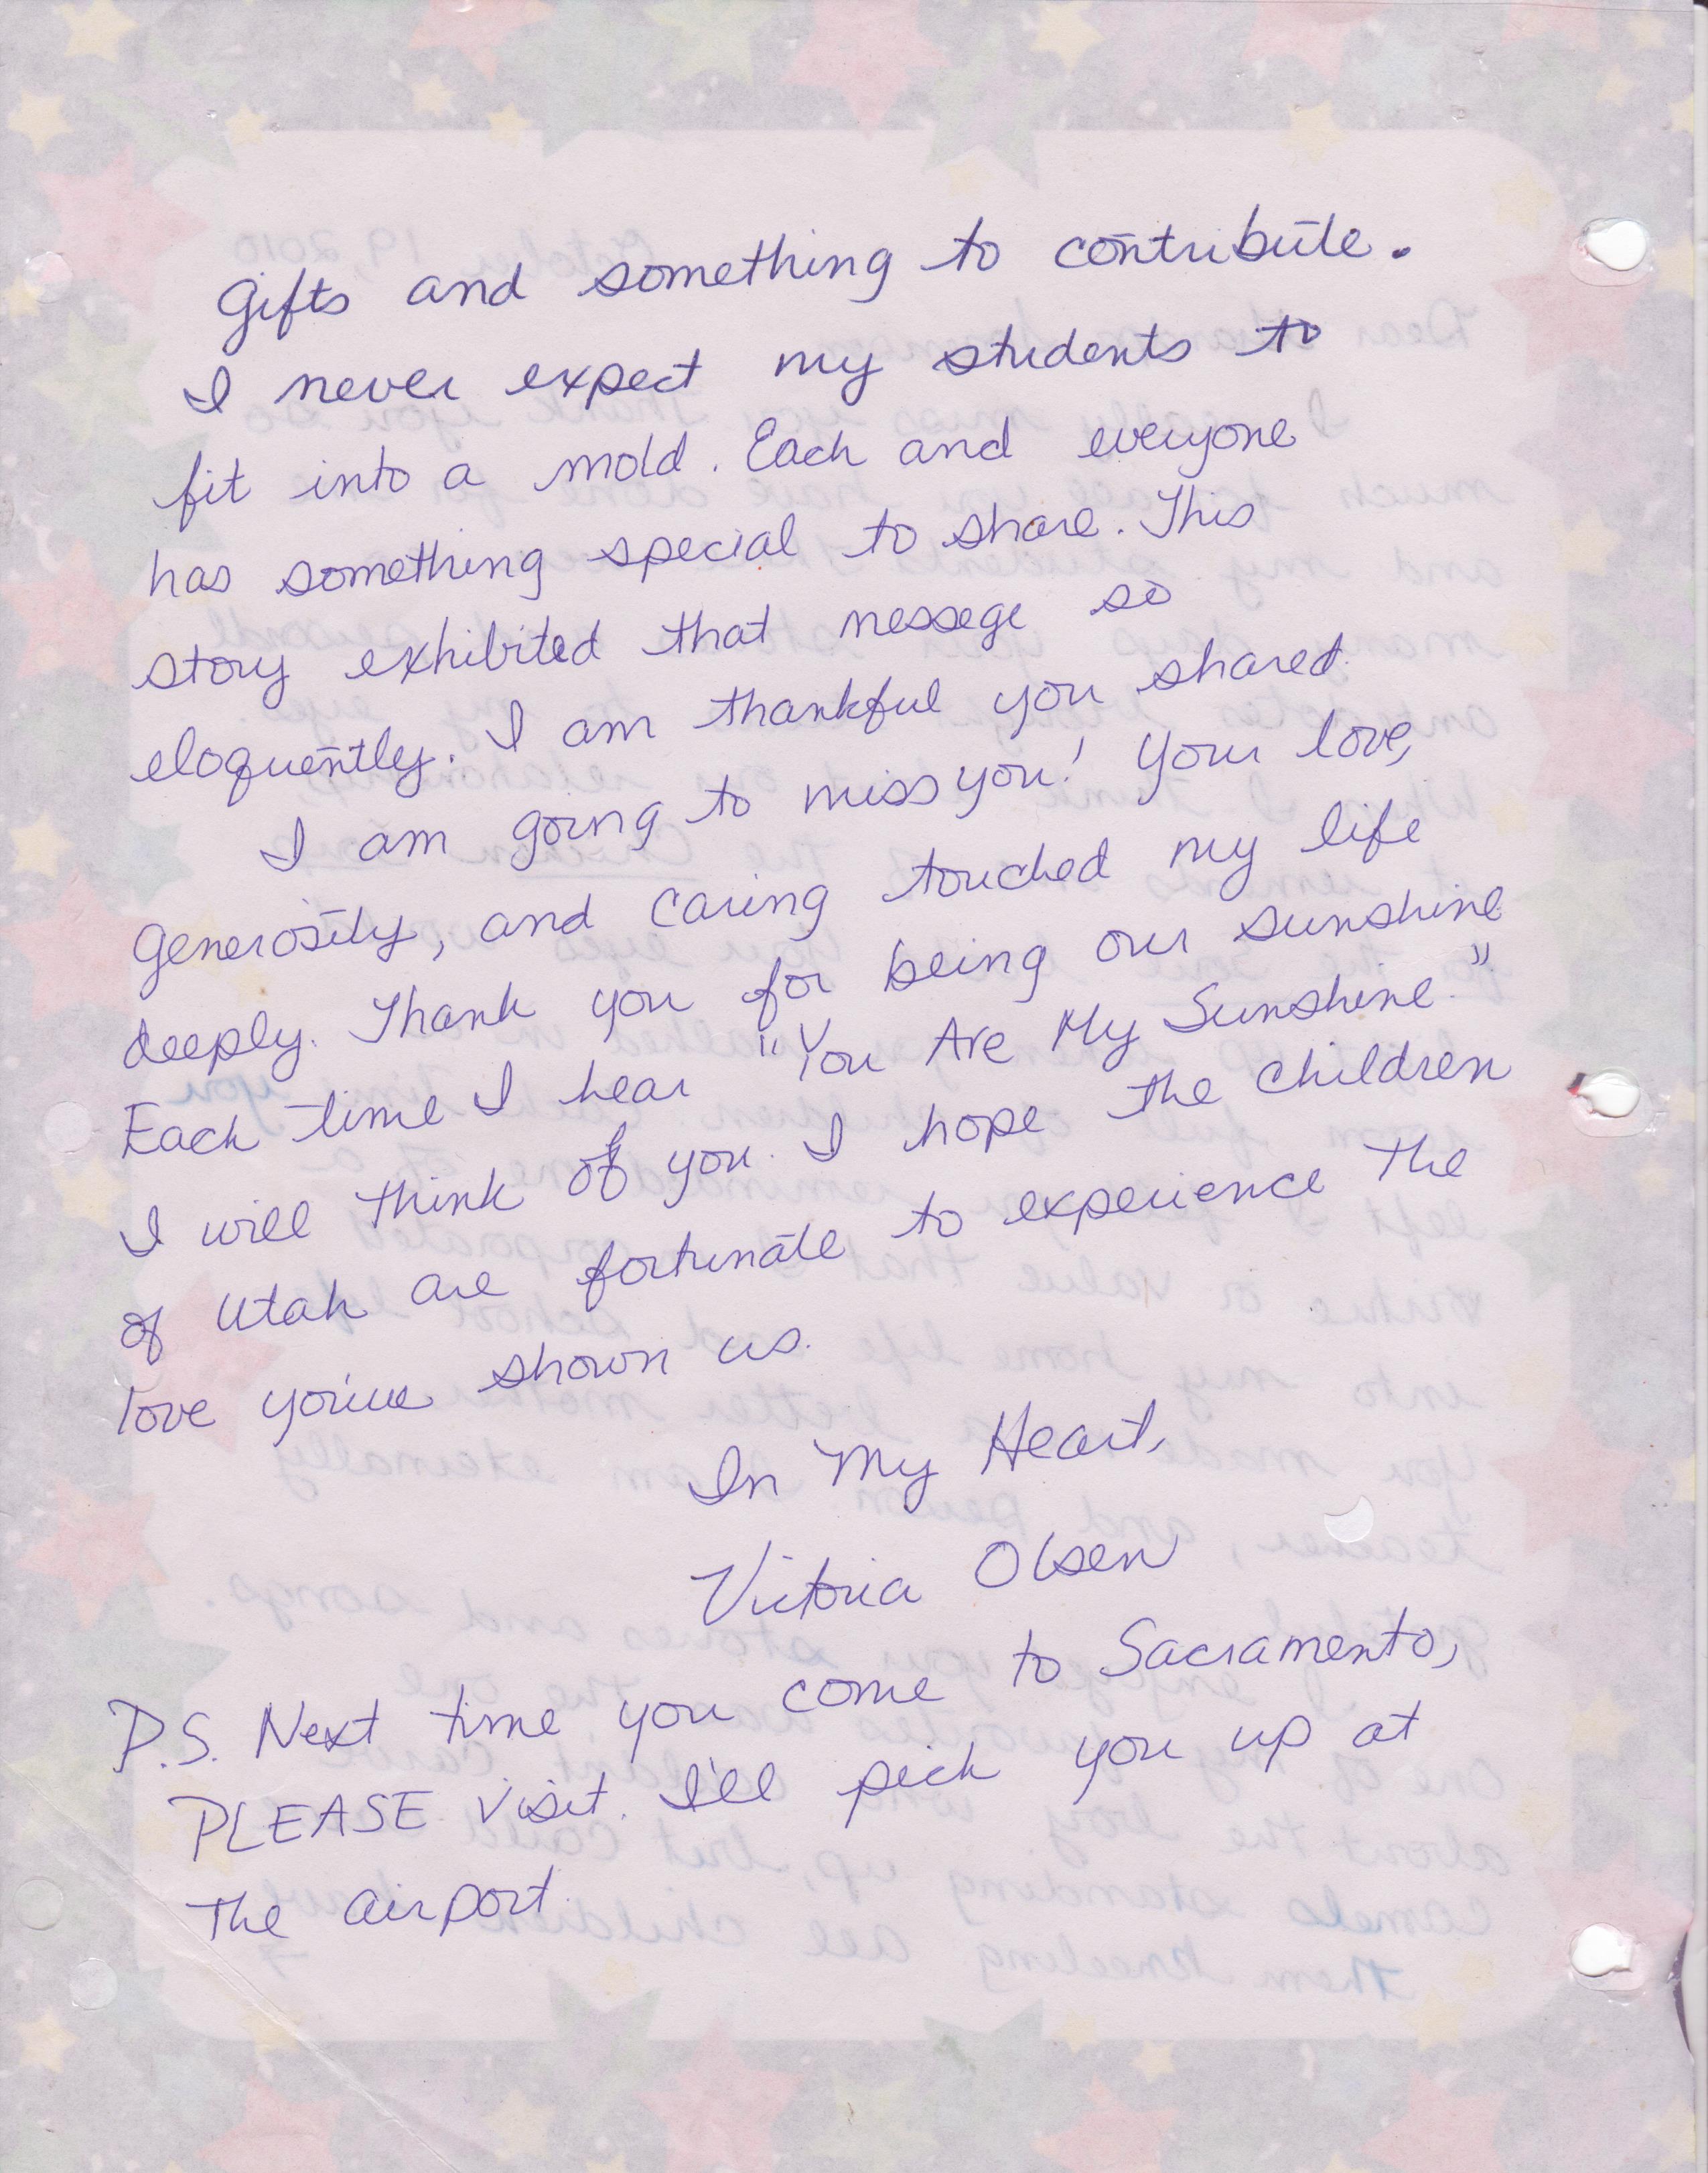 gifts and something to contribute.
I never expect my students to
fit into a mold. Each and everyone
has something special to share. This
story exhibited that messege so
eloquently. I am thankful you shared.
I am going to miss you! Your love,
generosity, and caring touched my life
deeply. Thank you for being our sunshine.
Each time I hear "You Are My Sunshine."
I will think of you. I hope the children
of Utah are fortunate to experience the
love you've shown us.
In My Heart,
Victoria Olsen
P.S. Next time you come to Sacramento,
PLEASE visit. I'll pick you up at
the airport.